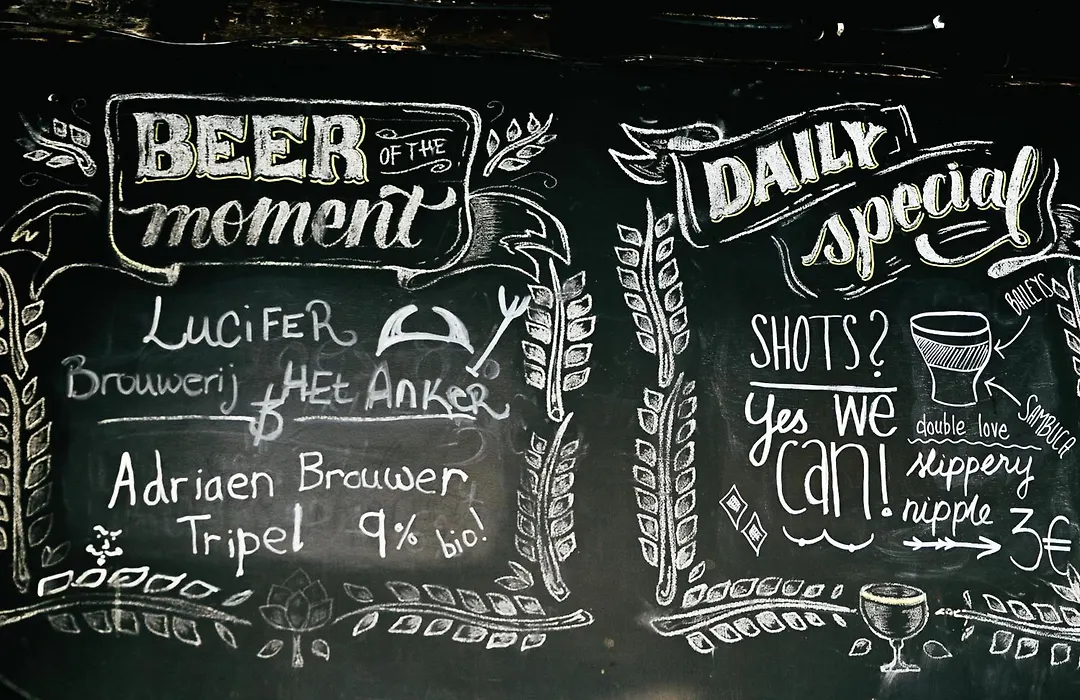 BEER OF THE
moment
LUCiFER
Brouwerij HEt ANKER
Adriaen Brouwer
Tripel 9% bio!
DAILY
special
SHOTS?
Yes we
can!
BAILEY'S
SAMBUCA
double love
slippery
nipple
3€